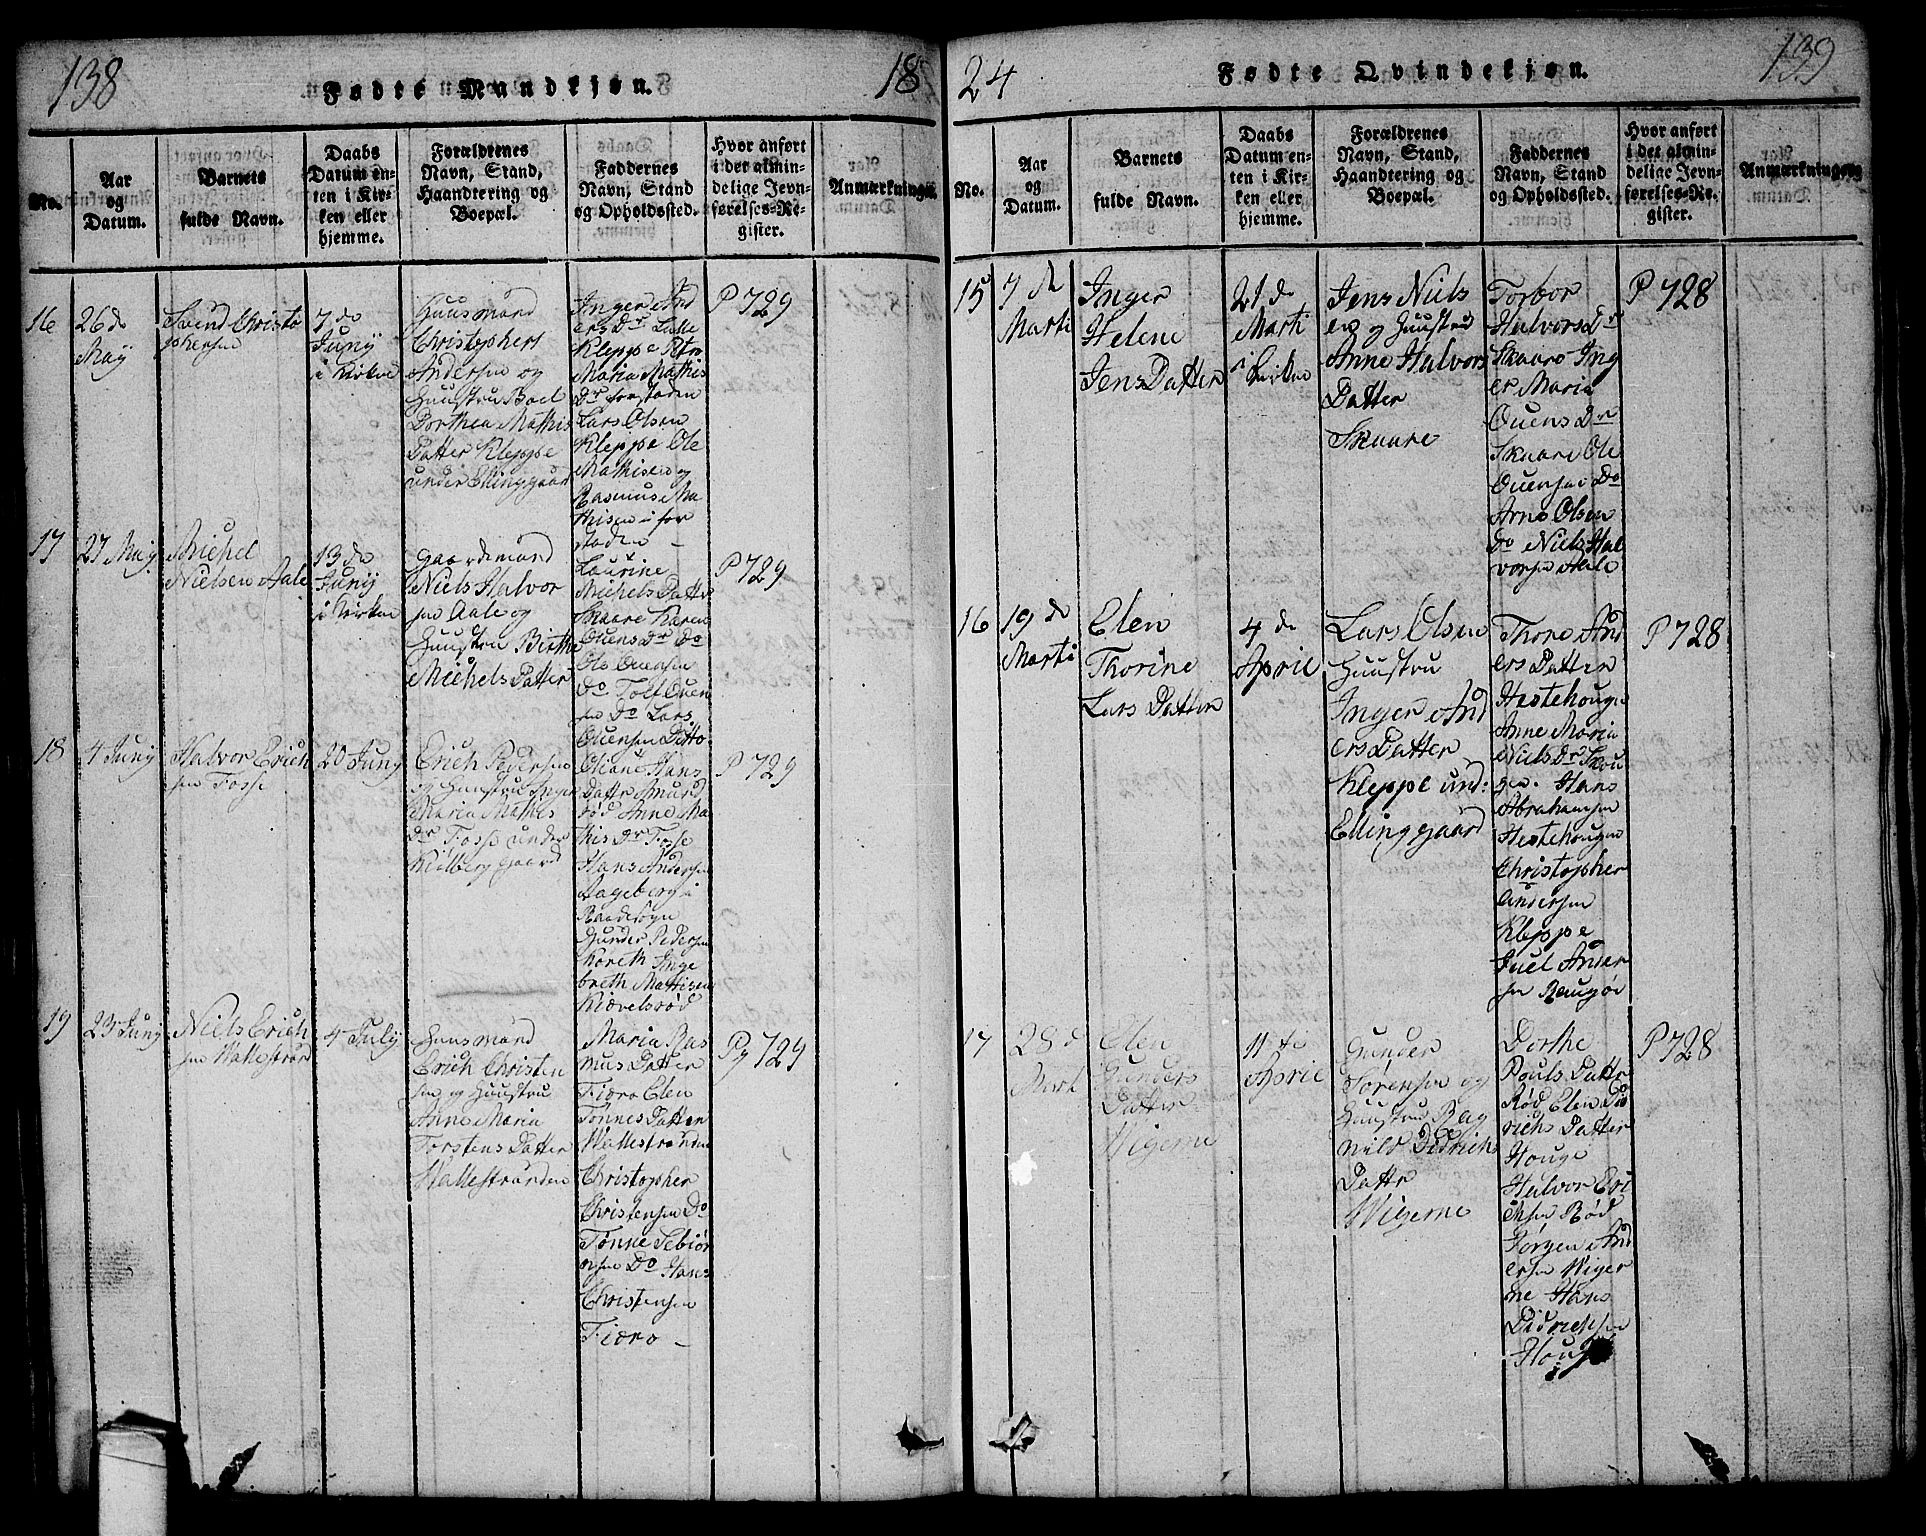 138
Fødte Mandkjøn.
18
No.
Aar
og
Datum.
Barnets
fulde Navn.
Daabs
Datum en-
ten i Kir-
ken eller
hjemme.
Forældrenes
Navn, Stand,
Haandtering og
Boepæl.
Faddernes
Navn, Stand
og Opholdssted.
Hvor anført
i det almin-
delige Jevn-
førelses-Re-
gister.
Anmærkninger.
16
26 de
Maÿ
Svend Christo
phersen
7 de
Junÿ
i Kirken
Huusmand
Christopher
Andersen og
Huustru Boel
Dorthea Mathis
Datter Kleppe
under Ellinggaard
Inger And
ers Dr Lille
Kleppe Petr
Maria Mathis
Dr forstaden
Lars Olsen
Kleppe Ole
Mathisen og
Rasmus Ma
thisen i for
staden
P 729
17
27 Maÿ
Michel
Nielsen Aale
13 de
Junÿ
i Kirken
Gaardmand
Niels Halvor
sen Aale og
Huustru Birthe
Michels Datter
Laurine
Michels Datter
Skaare Karen
Ouens Dr Do
Ole Ouensen
Do Tolf Ouen
sen Do Lars
Ouensen Ditto
P 729
18
4 Junÿ
Halvor Erich
sen Fosse
20 Junÿ
Erich Pedersen
og Huustru Inger
Maria Mathis
Dr Fosse under
Kielberg gaard
Oliane Hans
Datter Smund
rød Anne Ma
this Dr Fosse
Hans Andersen
Dageberg i
Raadesogn
Gunder Pedersen
Kareth Inge
breth Mattisen
Kiævelsrød
P 729
19
23 Junÿ
Niels Erich
sen Wallestrand
4 Julÿ
Huusmand
Erich Christen
sen og Huustru
Anne Maria
Torstens Datter
Wallestranden
Maria Ras
mus Datter
Fiæro Elen
Tønnes Datter
Wallestranden
Christopher
Christensen Do
Tønne Sebiør
nsen Do Hans
Christensen
Fiæro
Pg 729
24
Fødte Qvindekjøn.
139
No.
Aar
og
Datum.
Barnets
fulde Navn.
Daabs
Datum en-
ten i Kir-
ken eller
hjemme.
Forældrenes
Navn, Stand,
Haandtering og
Boepæl.
Faddernes
Navn, Stand
og Opholdssted.
Hvor anført
i det almin-
delige Jevn-
førelses-Re-
gister.
Anmærkninger
15
7 de
Marti
Inger
Helene
Jens Datter
21 de
Marti
i Kirken
Jens Niels
en og Huustru
Anne Halvors
Datter
Skaare
Torbor
Halvors Dr
Skaare Ing
er Maria
Ouens Dr
Skaare Ole
Ouensen Do
Arne Olsen
Do Niels Hal
vorsen Aale
P 728
16
19 de
Marti
Elen
Thorine
Lars Datter
4 de
April
Lars Olsen
Huustru
Inger And
ers Datter
Kleppe und:
Ellinggaard
Thore And
ers Datter
Hestehougen
Anne Maria
Niels Dr Skou
gen. Hans
Abrahamsen
Hestehougen
Christopher
Andersen
Kleppe
Juel Ander
sen Raugøi
P 728
17
28 d
Mart
Elen
Gunders
Datter
Wigerne
11 te
April
Gunder
Sørensen og
Huustru Rag
nild Didrichs
Datter
Wigerne
Dorthe
Pouls Datter
Rød Elen Did
richs Datter
Houge
Halvor Eri
chsen Rød
Jørgen And
ersen Wiger
ne Hans
Didrichsen
Houge
P 728